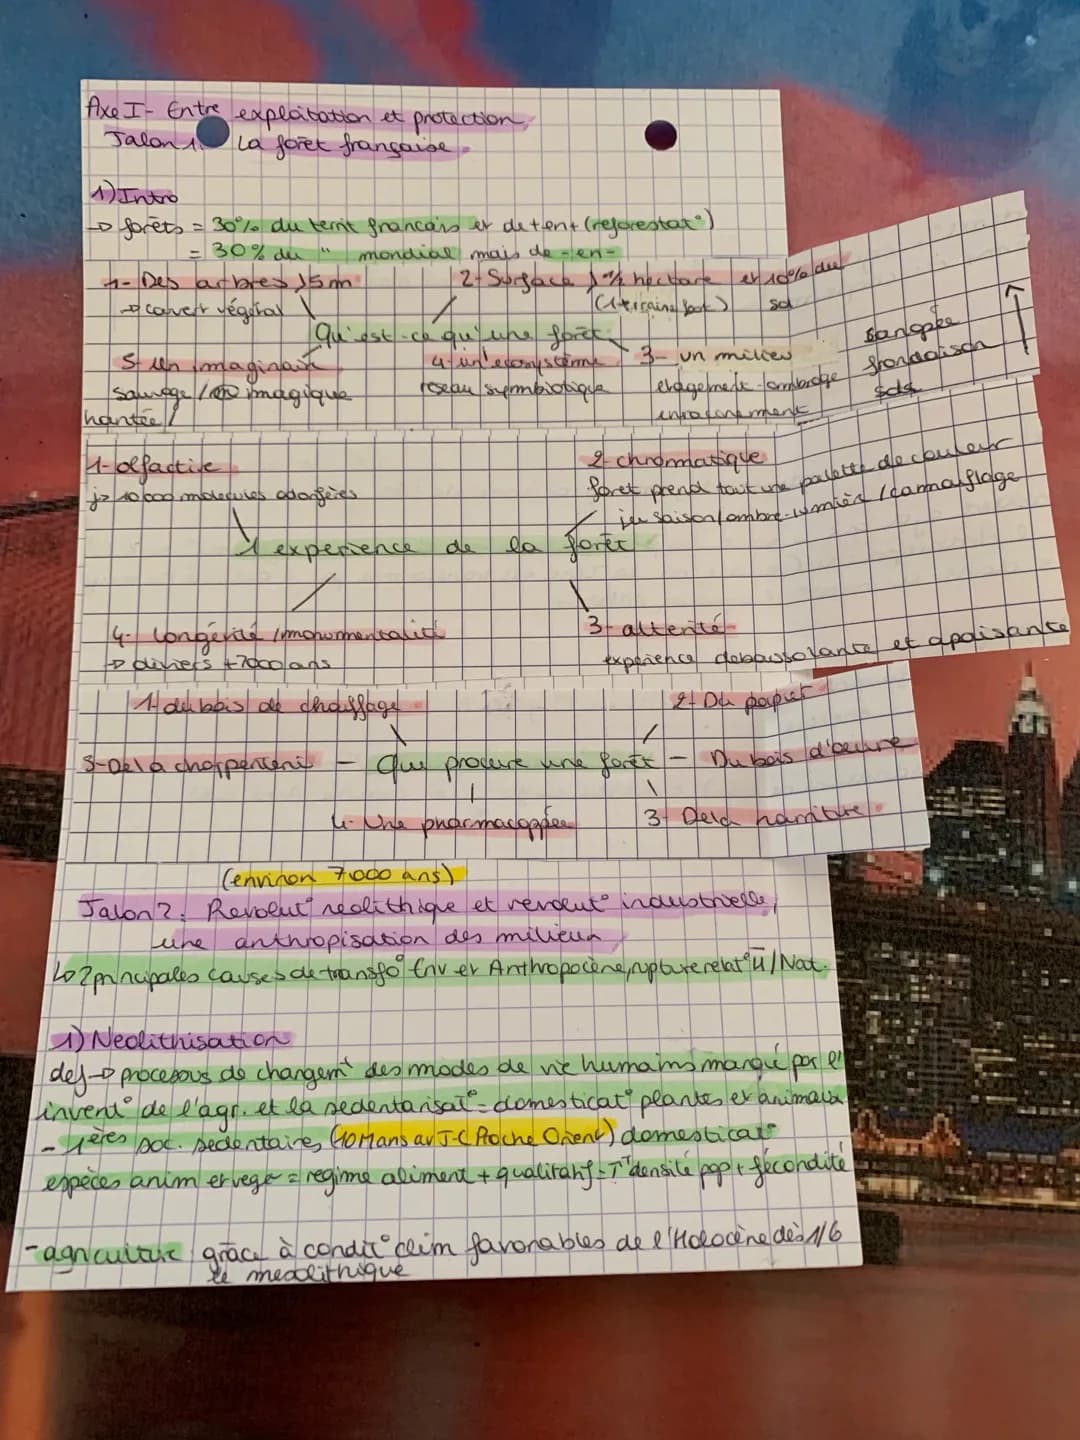 Axe I - Entre exploitation et protection
Jalon 1 La forêt française
1) Intro
→ forêts = 30% du territ français et de + en + (reforestat°)
= 30% du " mondial mais de - en -
1- Des arbres > 5m
→ couvert végétal
2- Surface > 1/2 hectare et 10% du sol
Qu'est-ce qu'une forêt
5- un imaginaire
sauvage / magique
hantée /
4- un ecosystème
réseau symbiotique
3- un milieu
étagement - ombrage
enracinement
Canopée
frondaison
sols
1- olfactive
10 000 molécules odorifères
2- chrommatique
forêt prend tout une palette de couleur
jeu saison / ombre-lumière / camouflage
1 experience de la forêt
4- Longévité / monumentalité
→ oliviers + 7000 ans
3- altérité
expérience deboussolante et apaisante
1- du bois de chauffage
2- Du papier
5- De la charpenterie - Que produit une forêt - Du bois d'oeuvre
4- Une pharmacoppée
3- De la nourriture
(environ 7000 ans)
Jalon 2: Revolut° néolithique et révolut° industrielle,
une anthropisation des milieux
↳ 2 principales causes de transfo° Env et Anthropocène, rupture relat° ū / Nat.
1) Neolithisation
def → processus de changemt des modes de vie humains marqué par l'
invent° de l'agr. et la sédentarisat° = domesticat° plantes et animaux
- 1ères soc. sedentaires (10 M ans av J-C Proche Orient) domesticat°
espèces anim et vege = régime aliment + qualitatif = ↑ densité pop + fécondité
- agriculture grâce à condit° clim favorables de l'Holocène dès 1/6
le mésolithique